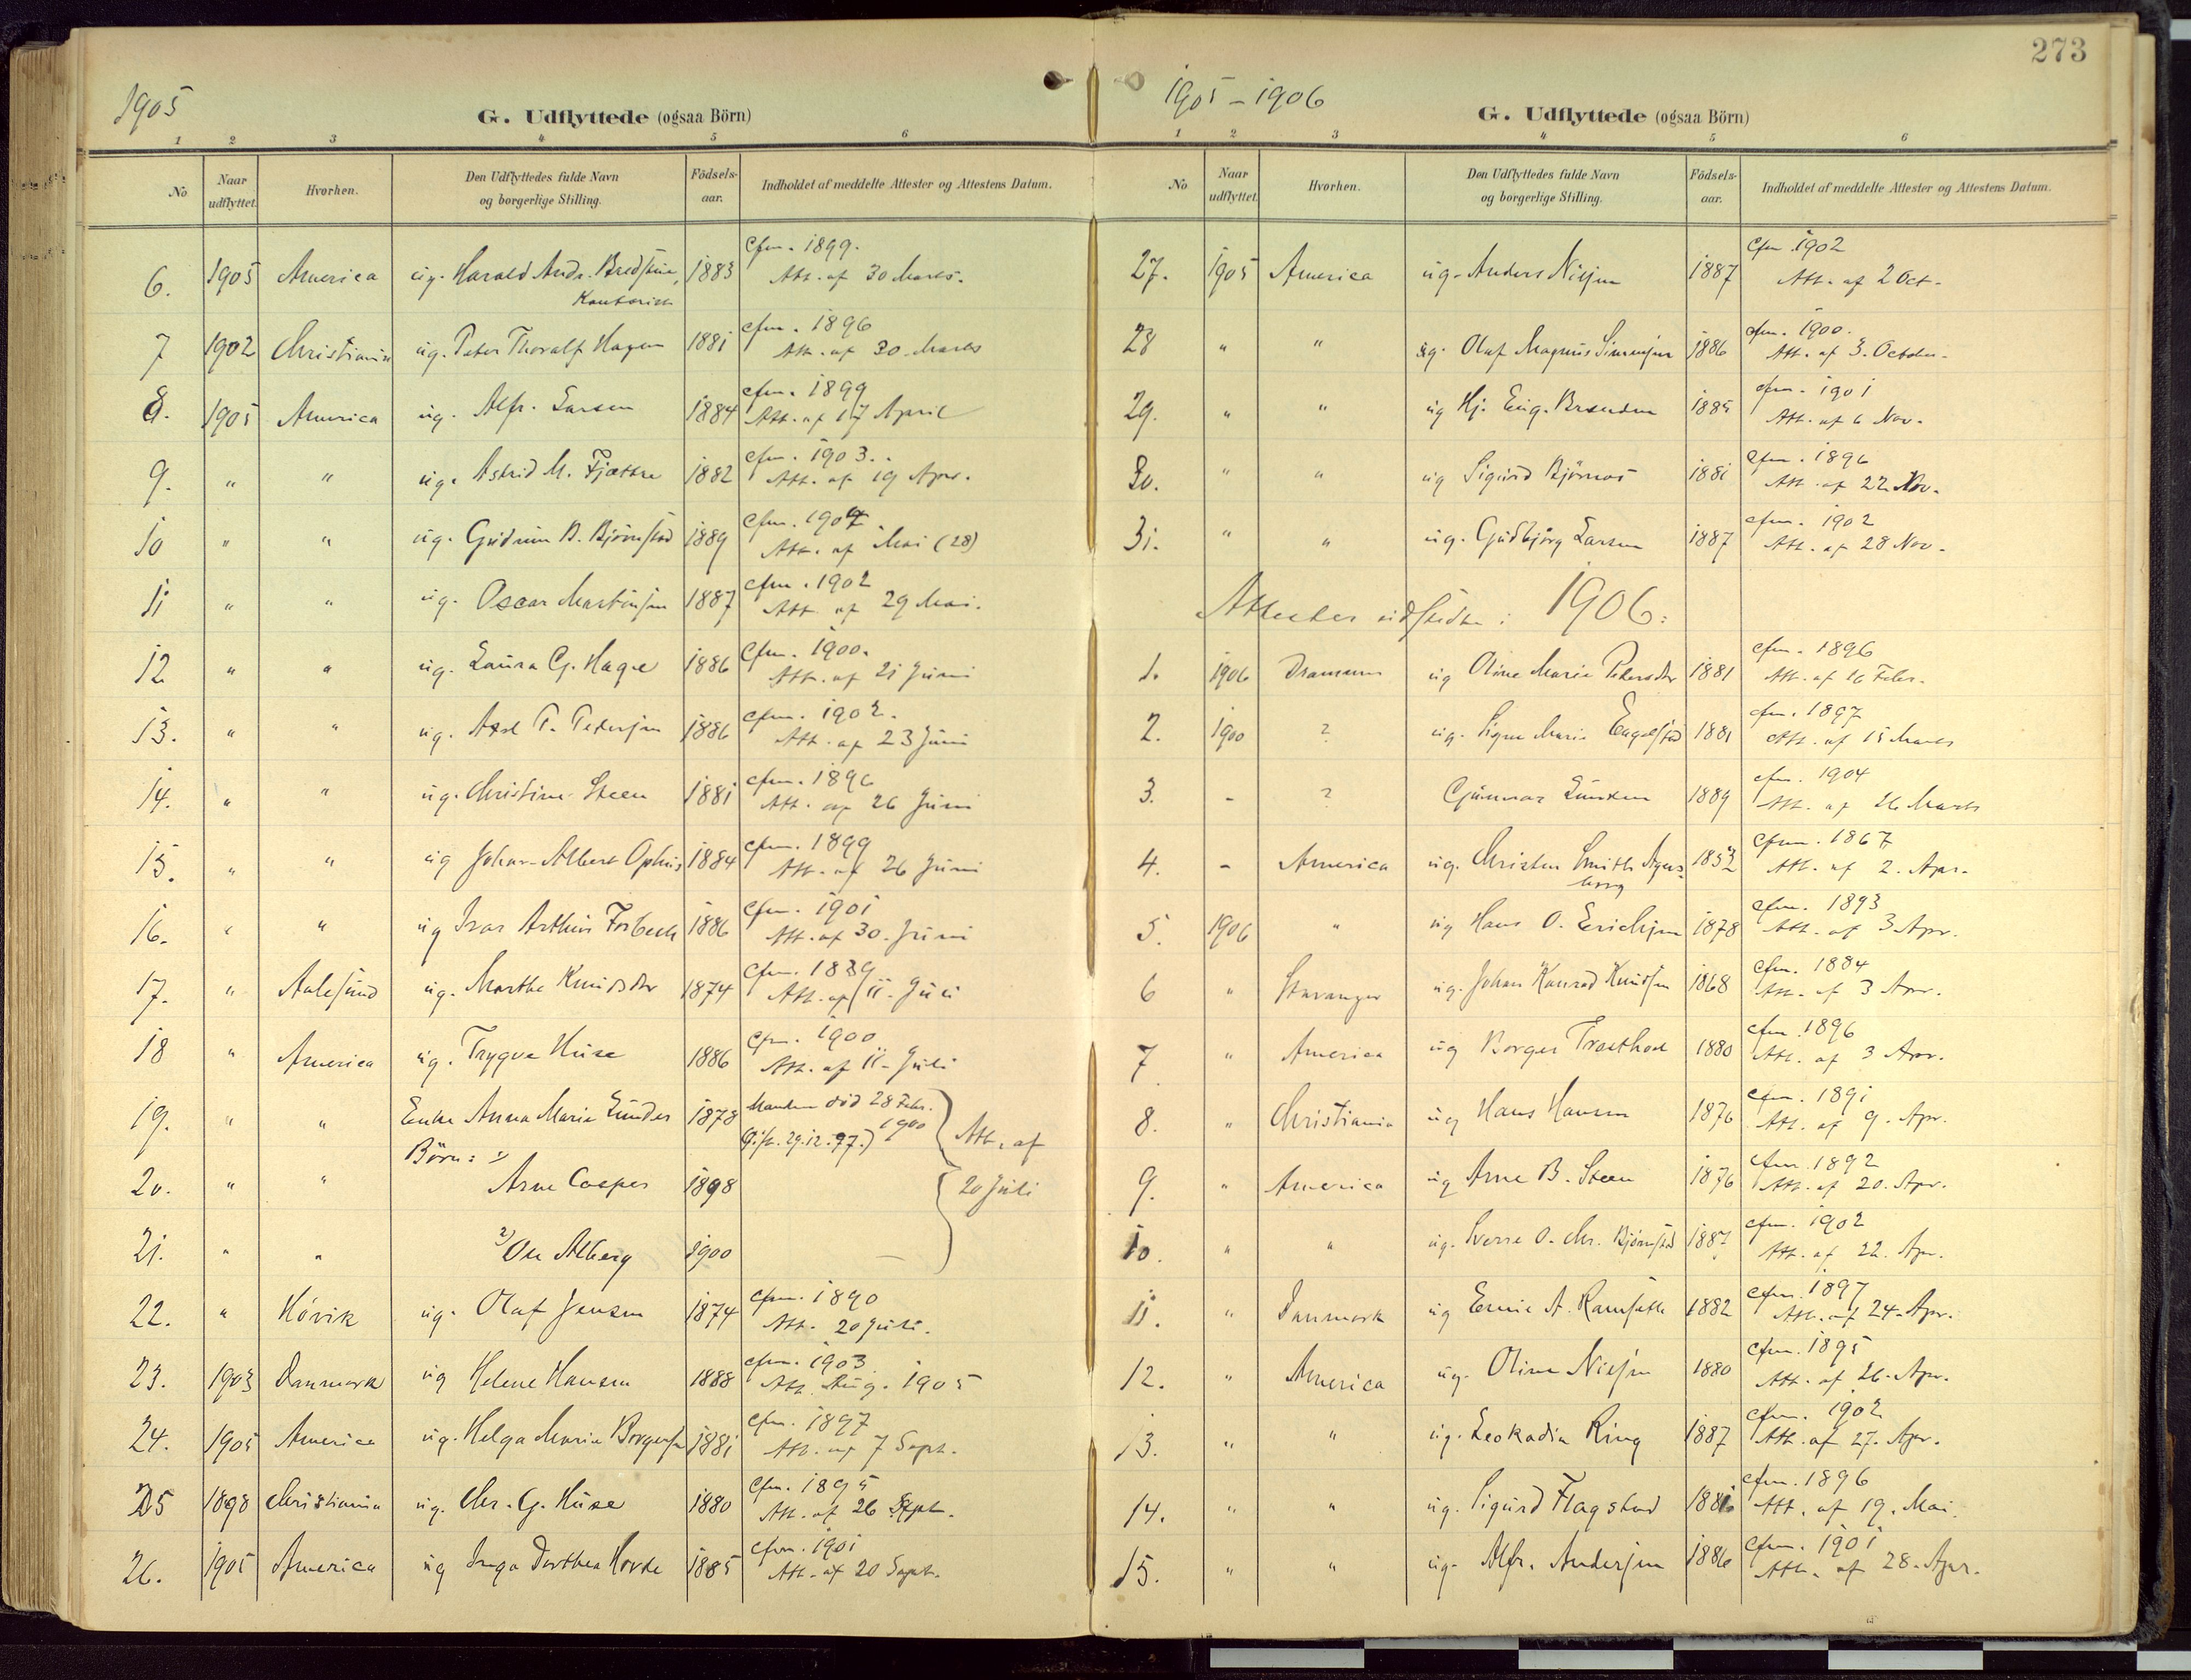 1905
G. Udflyttede (ogsaa Börn)
1 2 3 4 5 6
No Naar udflyttet. Hvorhen. Den Udflyttedes fulde Navn og borgerlige Stilling. Födsels-aar. Indholdet af meddelte Attester og Attestens Datum.
6. 1905 America ug. Harald Andr. 1883 Cfm. 1899. Att. af 30 Marts.
7 1902 Christiania ug. Peter Thoralf Hagen 1881 cfm. 1896 Att. af 30. Marts
8. 1905 America ug. Alfr. Larsen 1884 cfm. 1899 Att. af 17 April
9. " " ug. Astrid M. Fjættre 1882 cfm. 1903. Att. af 19 Apr.
10 " " ug. Gudrun B. Björnstad 1889 cfm. 1904 Att. af Mai (28)
11 " " ug. Oscar Martinsen 1887 cfm. 1902 Att. af 29 Mai.
12 " " ug. Laura G. Hage 1886 Cfm. 1900. Att. af 21 Juni
13. " " ug. Axel T. Petersen 1886 cfm. 1902. Att. af 23 Juni
14. " " ug. Christine Steen 1881 cfm. 1896 Att. af 26 Juni
15. " " ug Johan Albert Ophus 1884 cfm. 1899 Att. af 26 Juni
16. " " ug Ivar Arthur Forbech 1886 cfm. 1901 Att. af 30. Juni
17. " Aalesund ug. Marthe Knudsdtr 1874 Cfm. 1889 Att. af 11. Juli
18 " America ug. Trygve Huse 1886 Cfm. 1900 Att. af 11. Juli
19. " " Enke Anna Marie Lunder 1878 Manden död 28 Febr. 1900 (Gift. 29.12.97.) Att. af
Börn: 1)
20. " " Arne Casper 1898 20 Juli
21. " " 2) Ole Alberg 1900
22. " Hövik ug. Olaf Jensen 1874 Cfm. 1890 Att. 20 Juli.
23. 1903 Danmark ug Helene Hansen 1888 cfm. 1903 Att. Aug. 1905
24. 1905 America ug. Helga Marie 1881 Cfm. 1897 Att. af 7 Sept.
25 1898 Christiania ug. Chr. G. Huse 1880 Cfm. 1895 Att. af 26 Sept.
26. 1905 America ug Inga Dorthea Hovde 1885 cfm. 1901 Att. af 20 Sept.
273
1905-1906
G. Udflyttede (ogsaa Börn)
1 2 3 4 5 6
No Naar udflyttet. Hvorhen. Den Udflyttedes fulde Navn og borgerlige Stilling. Födsels-aar. Indholdet af meddelte Attester og Attestens Datum.
27. 1905 America ug. Anders Nilsen 1887 Cfm 1902 Att. af 2 Oct.
28 " " ug. Olaf Magnus Simensen 1886 cfm. 1900. Att. af 3. October.
29. " " ug Hj. Eug. 1885 cfm. 1901 Att. af 6 Nov.
30. " " ug Sigurd Björnas 1881 cfm. 1896 Att. af 22 Nov.
31. " " ug. Gudbjörg Larsen 1887 cfm. 1902 Att. af 28 Nov.
Attester udstedte i 1906:
1. 1906 Drammen ug Oline Marie Pedersdtr 1881 cfm. 1896 Att. af 16 Febr.
2. 1900 ? ug. Signe Marie Engelstad 1881 cfm. 1897 Att. af 15 Marts
3. - ? Gunnar Lunden 1889 cfm. 1904 Att. af 26 Marts
4. - America ug. Christen Smith 1852 Cfm. 1867 Att. af 2. Apr.
5. 1906 " ug Hans O. Erichsen 1878 cfm. 1893 Att. af 3 Apr.
6 " Stavanger ug. Johan Konrad Knudsen 1868 cfm. 1884 Att. af 3 Apr.
7 " America ug Borger 1880 cfm. 1896 Att. af 3 Apr.
8. " Christiania ug Hans Hansen 1876 cfm. 1891 Att. af 9. Apr.
9. " America ug Arne B. Steen 1876 cfm. 1892 Att. af 20. Apr.
10. " " ug. Sverre O. Chr. Björnstad 1887 cfm. 1902 Att. af 22. Apr.
11. " Danmark ug A. 1882 cfm. 1897 Att. af 24. Apr.
12. " America ug. Oline Nilsen 1880 Cfm. 1895 Att. af 26. Apr.
13. " " ug. Leokadia Ring 1887 cfm. 1902 Att. af 27. Apr.
14. " " ug. Sigurd Flagstad 1881 cfm. 1896 Att. af 19. Mai.
15. " " ug. Alfr. Andersen 1886 Cfm. 1901 Att. af 28. Apr.